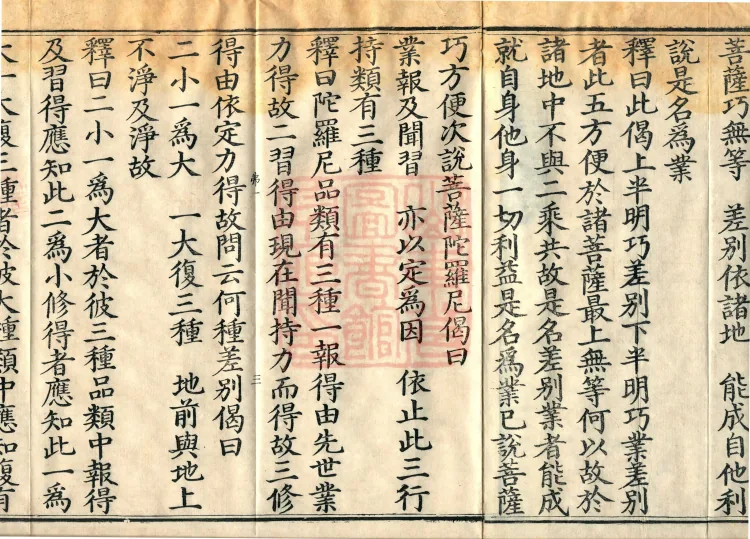 菩薩巧無等　差別依諸地　能成自他利
說是名爲業
釋曰此偈上半明巧差別下半明巧業差別
者此五方便於諸菩薩最上無等何以故於
諸地中不與二乘共故是名差別業者能成
就自身他身一切利益是名爲業已說菩薩
巧方便次說菩薩陀羅尼偈曰
業報及聞習　亦以定爲因　依止此三行
持類有三種
釋曰陀羅尼品類有三種一報得由先世業
力得故二習得由現在聞持力而得故三修
弟一　三
得由依定力得故問云何種差別偈曰
二小一爲大　一大復三種　地前與地上
不淨及淨故
釋曰二小一爲大者於彼三種品類中報得
及習得應知此二爲小修得者應知此一爲
大一大復三種者於彼大種類中應知復有